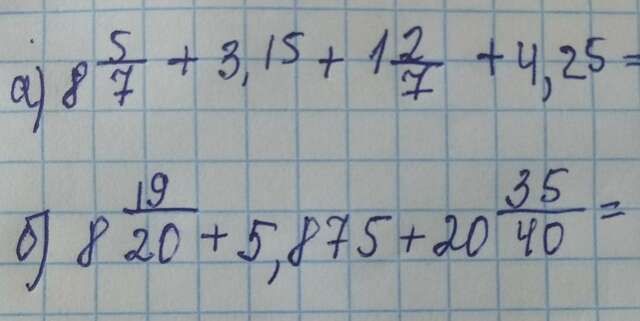 а) 8 5/7 + 3,15 + 1 2/7 + 4,25 =
б) 8 19/20 + 5,875 + 20 35/40 =